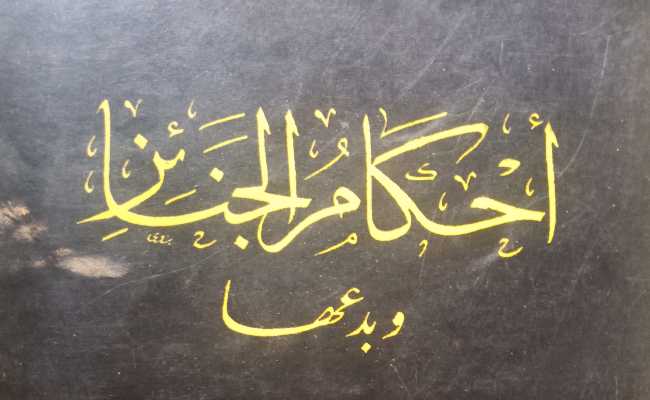 أحكامُ الجنَائِز
وبدعها